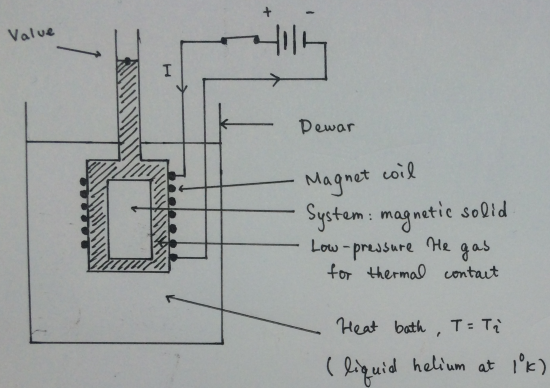 Value
+ -
I
Dewar
Magnet coil
System: magnetic solid
Low-pressure He gas
for thermal contact
Heat bath, T = Ti
(liquid helium at 1°K)